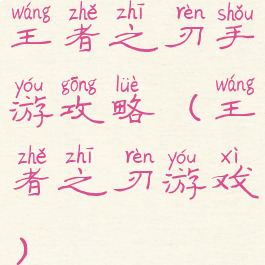 wáng zhě zhī rèn shǒu
王者之刃手
yóu gōng lüè wáng
游攻略（王
zhě zhī rèn yóu xì
者之刃游戏
）